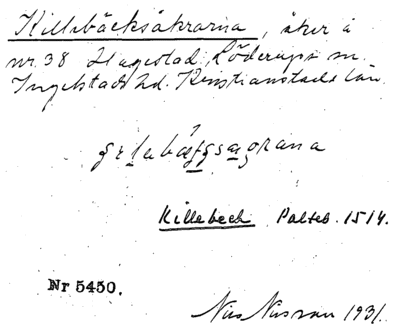 Killebäcksåkrarna, åker å
nr 38 Hagestad Löderups sn.
Ingelstads hd. Kristianstads län.
Killebeck Palteb. 1514.
Nr 5450.
Nils Nilsson 1931.